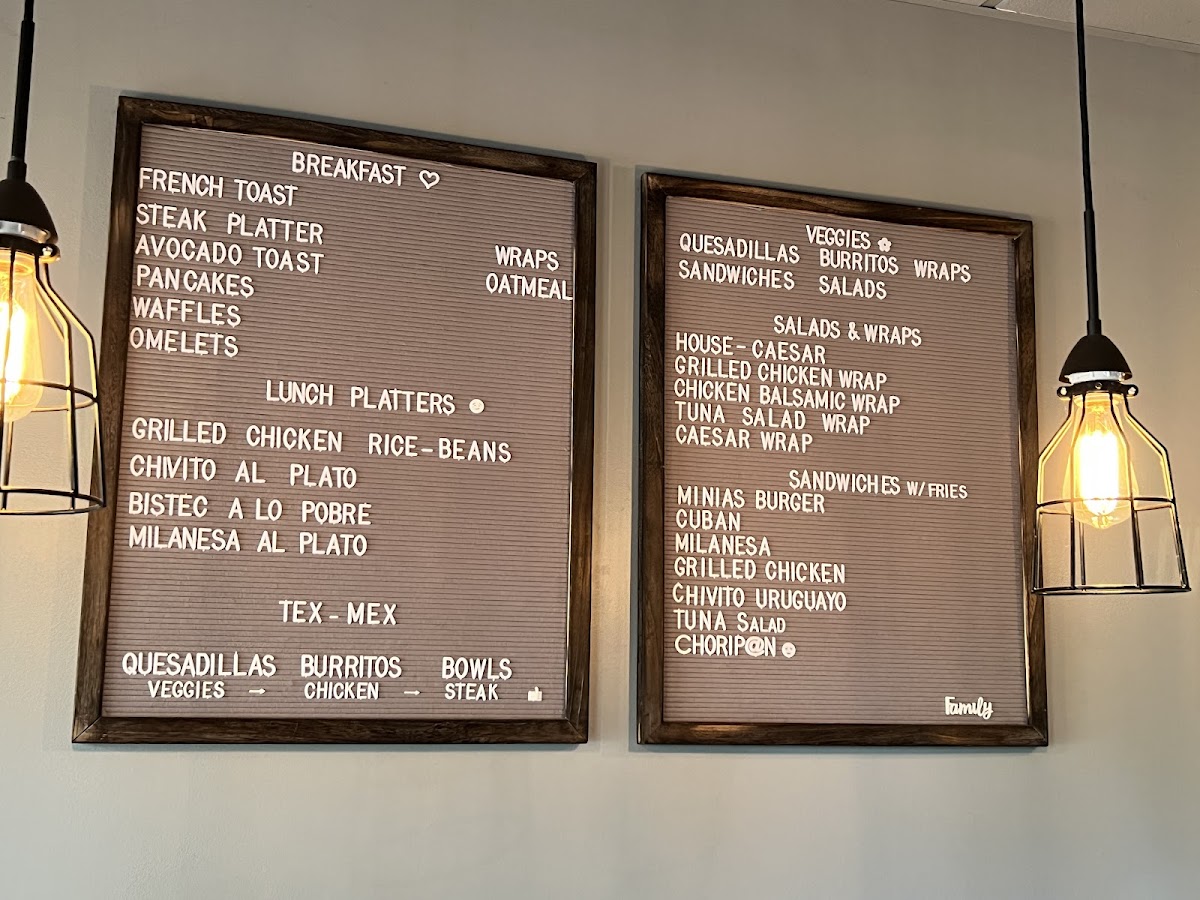 BREAKFAST ♡
FRENCH TOAST
STEAK PLATTER
AVOCADO TOAST
PANCAKES
WAFFLES
OMELETS
WRAPS
OATMEAL
LUNCH PLATTERS
GRILLED CHICKEN RICE-BEANS
CHIVITO AL PLATO
BISTEC A LO POBRE
MILANESA AL PLATO
TEX-MEX
QUESADILLAS BURRITOS BOWLS
VEGGIES → CHICKEN → STEAK
VEGGIES
QUESADILLAS BURRITOS WRAPS
SANDWICHES SALADS
SALADS & WRAPS
HOUSE-CAESAR
GRILLED CHICKEN WRAP
CHICKEN BALSAMIC WRAP
TUNA SALAD WRAP
CAESAR WRAP
SANDWICHES W/FRIES
MINIAS BURGER
CUBAN
MILANESA
GRILLED CHICKEN
CHIVITO URUGUAYO
TUNA SALAD
CHORIP@N
Family